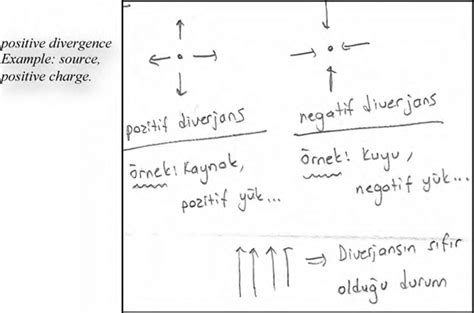 positive divergence
Example: source,
positive charge.
pozitif diverjans
örnek: Kaynak,
pozitif yük...
negatif diverjans
örnek: Kuyu,
negatif yük...
⇒ Diverjansın sıfır
olduğu durum